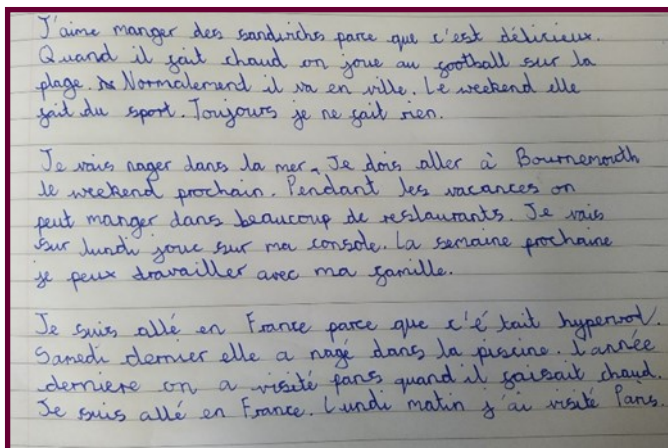 J'aime manger des sandwichs parce que c'est délicieux.
Quand il fait chaud on joue au football sur la
plage. Normalemend il va en ville. Le weekend elle
fait du sport. Toujours je ne fait rien.
Je vais nager dans la mer. Je dois aller à Bournemouth
le weekend prochain. Pendant les vacances on
peut manger dans beaucoup de restaurants. Je vais
sur lundi joue sur ma console. La semaine prochaine
je peux travailler avec ma famille.
Je suis allé en France parce que c'é tait
Samedi dernier elle a nagé dans la piscine. L'année
derniere on a visité paris quand il faisait chaud.
Je suis allé en France. Lundi matin j'ai visité Paris.